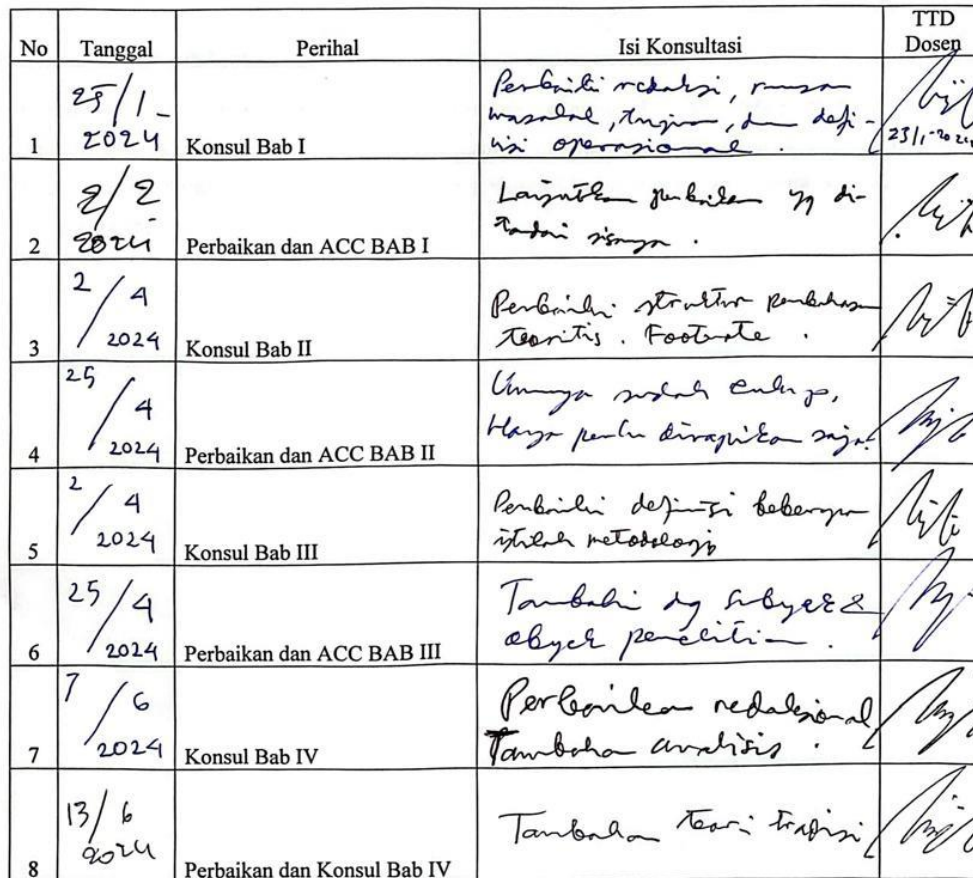 No Tanggal Perihal Isi Konsultasi TTD Dosen
1 25/1-2024 Konsul Bab I Perbaiki redaksi, rumusan
masalah, tujuan, dan defi-
nisi operasional.
23/1-2024
2 2/2-2024 Perbaikan dan ACC BAB I Lanjutkan perbaikan yg di-
tandai sisanya.
3 2/4 2024 Konsul Bab II Perbaiki struktur pembahasan
teoritis. Footnote.
4 25/4 2024 Perbaikan dan ACC BAB II Umumnya sudah cukup,
Hanya perlu dirapikan saja.
5 2/4 2024 Konsul Bab III Perbaiki definisi beberapa
istilah metodologis
6 25/4 2024 Perbaikan dan ACC BAB III Tambahi dg subyek &
obyek penelitian.
7 7/6 2024 Konsul Bab IV Perbaikan redaksional
Tambahan analisis.
8 13/6 2024 Perbaikan dan Konsul Bab IV Tambahan teori